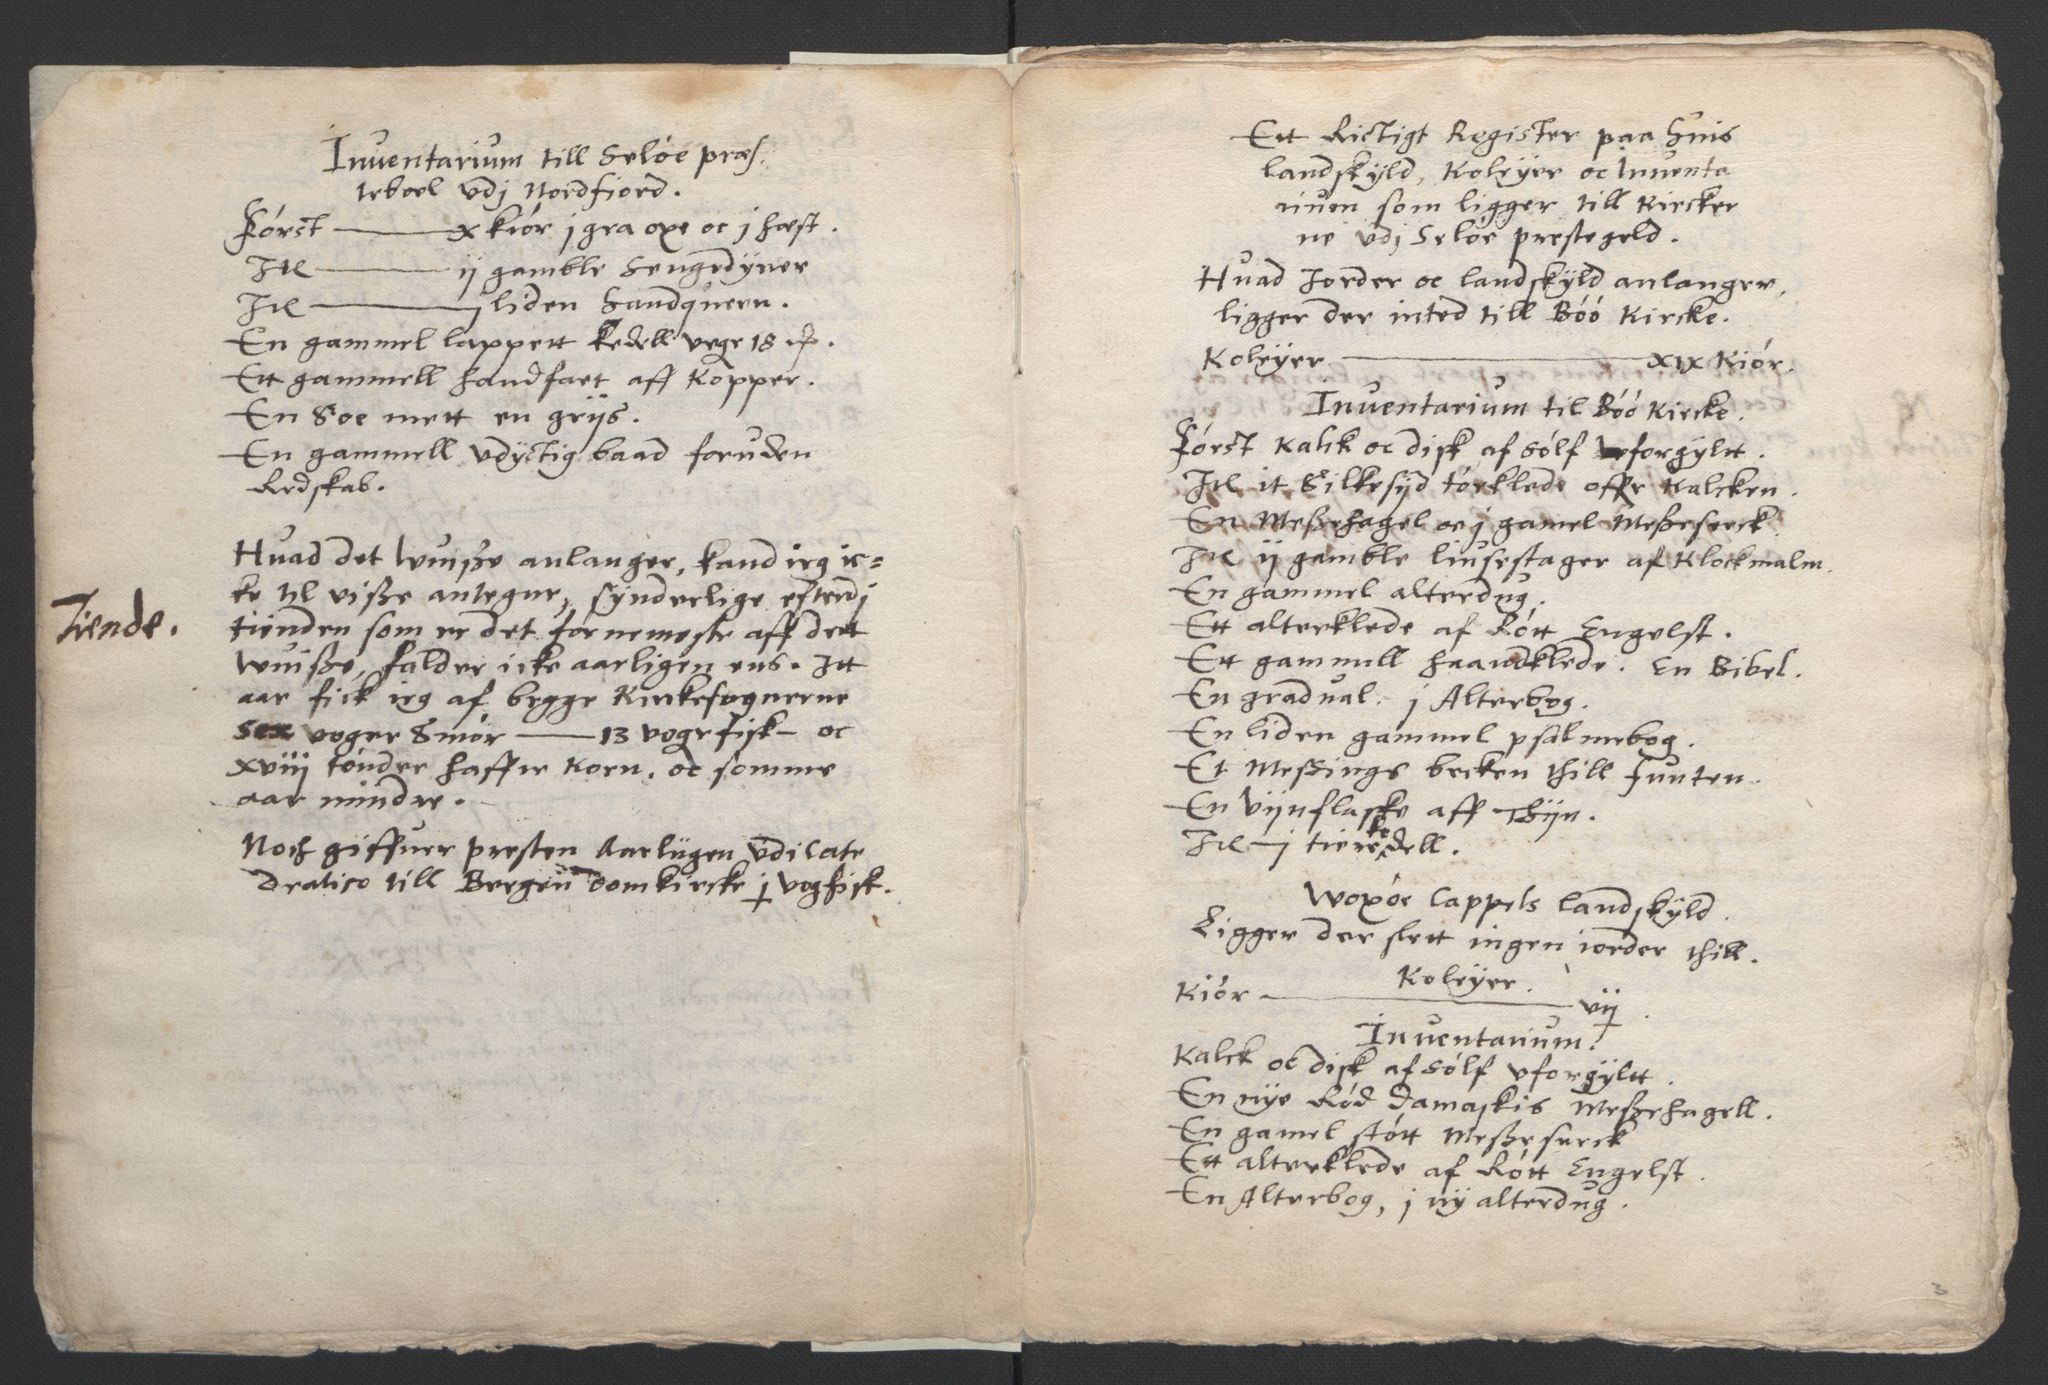 Inuentarium till Seløe præs.
teboel vdj Nordfiord.
Først — x kiør j gra oxe oc j hæst.
Itē — ij gamble Sengedyner
Itē — j liden Handquern.
En gammel lappett kedell vege 18
Ett gammell handfaet aff Kopper.
En Soe mett en griis.
En gammell vdyctig baad foruden
Redskab.
Huad det wuisße anlanger, kand ieg ic=
ke til visße antegne, synderlige efterdj
Tiende.
tienden som er det fornemeste aff dett
wuisße, falder icke aarligen ens. Itt
aar fick ieg af begge Kirkesognerne
sex voger Smør — 13 voge fisk — oc
xviij tønder haffre Korn. oc somme
aar mindre.
Noch giffuer presten Aarligen vdi Cate
dratico till Bergen domkircke j vog fisk.
Ett Rictigt Register paa Huis
landskyld, Koleyer oc Inuenta
rium som ligger till Kircker
ne vdj Seløe prestegeld.
Huad Jorder oc landskyld anlanger,
ligger der inted till Bøø Kircke.
Koleyer — xix Kiør.
Inuentarium til Bøø Kircke.
Først Kalk oc disk af sølf vforgyltt.
Itē it Silkesyd tørklede offr Kalcken.
En Mesßehagel oc j gamel Mesßeserck.
Itē ij gamble liusestager af Klockmalm.
En gammel alterdug.
Ett alterklede af Røtt Engelst.
Ett gammell haandklede. En Bibel.
En gradual. j Alterbog.
En liden gammel psalmebog.
Et Mesßings becken thill funten.
En Viinflaske aff Thiin.
Itē — j tierekedell.
Woxøe Cappels landskyld.
Ligger der slett ingen iorder thill.
Koleyer.
Kiør — vij.
Inuentarium.
Kalck oc disk af sølf vforgyltt.
En nye Rød Damaskis Mesßehagell.
En gamel støtt Mesßeserck
Ett alterklede af Røtt Engelst.
En Alterbog, j ny alterdug.
3